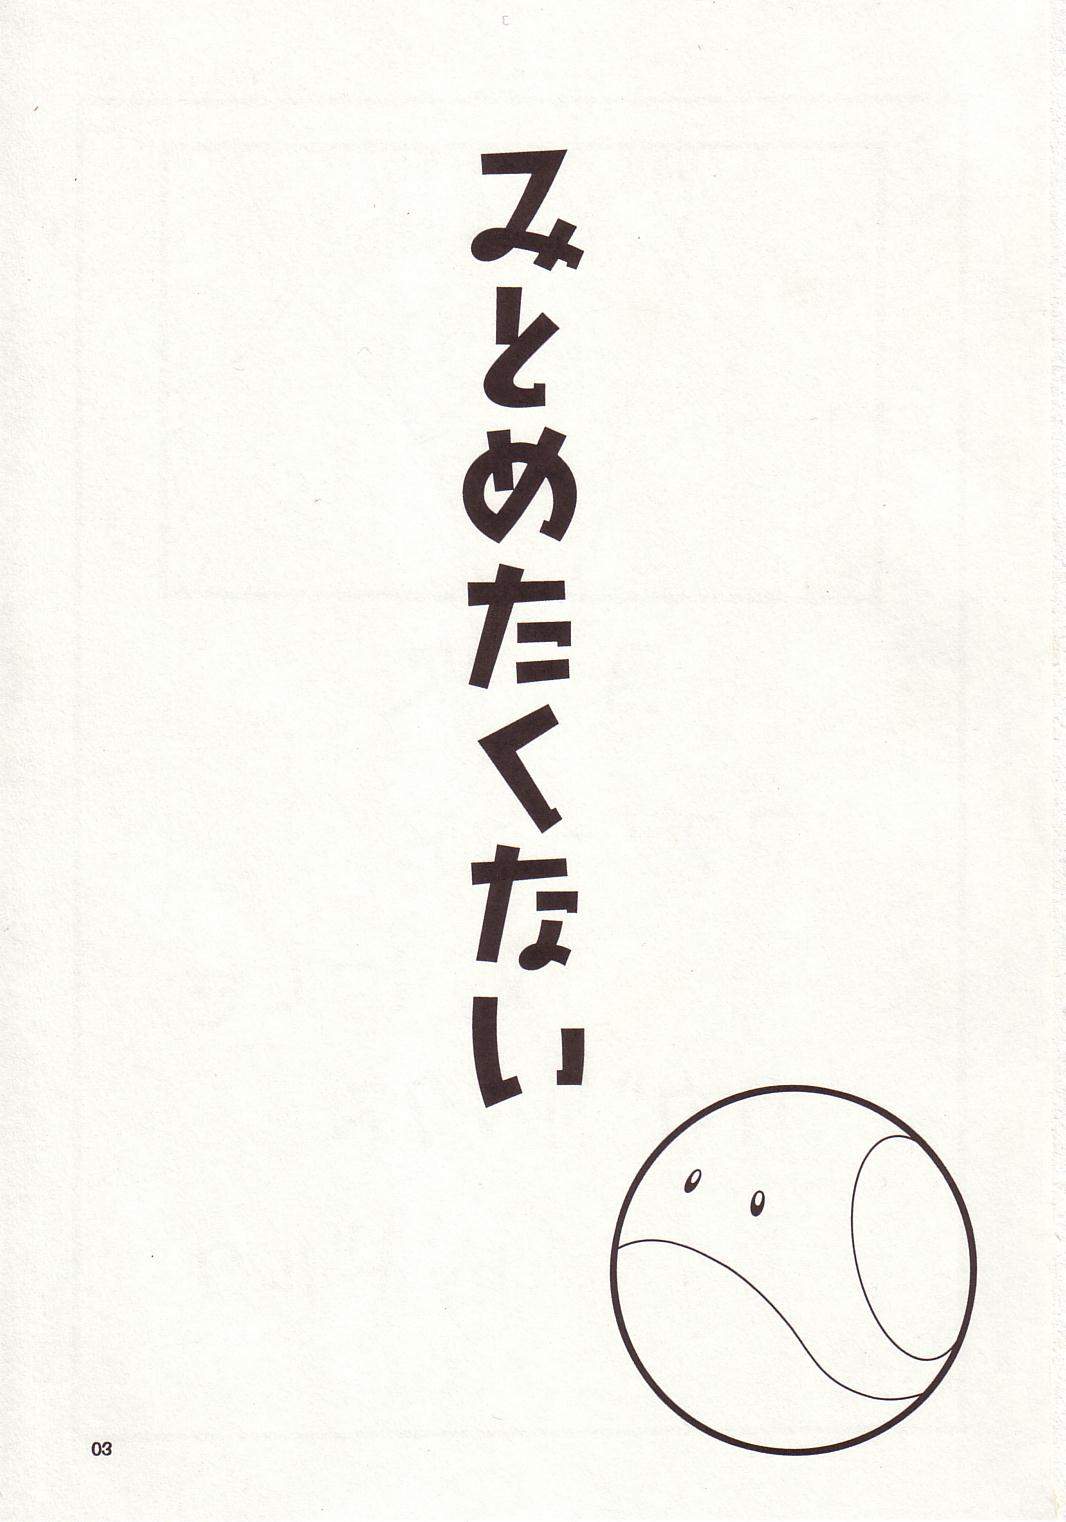 みとめたくない
03